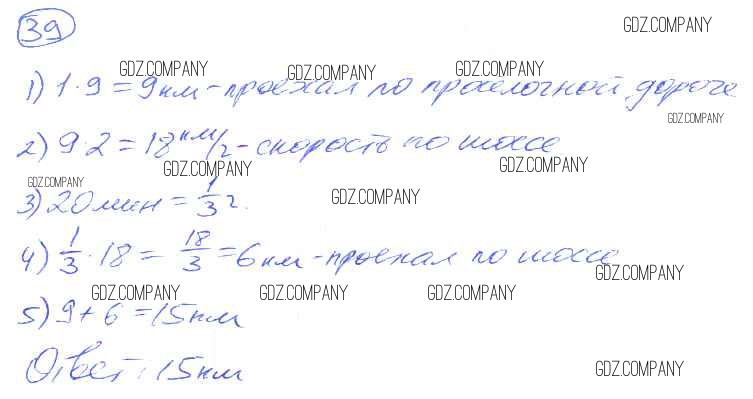 39
GDZ.COMPANY
GDZ.COMPANY GDZ.COMPANY GDZ.COMPANY
1) 1·9 = 9км - проехал по проселочной дороге
GDZ.COMPANY
2) 9·2 = 18 км/ч - скорость по шоссе
GDZ.COMPANY GDZ.COMPANY
GDZ.COMPANY GDZ.COMPANY
3) 20 мин = 1/3 ч.
4) 1/3 · 18 = 18/3 = 6 км - проехал по шоссе
GDZ.COMPANY
GDZ.COMPANY GDZ.COMPANY GDZ.COMPANY
5) 9 + 6 = 15 км
Ответ: 15 км
GDZ.COMPANY